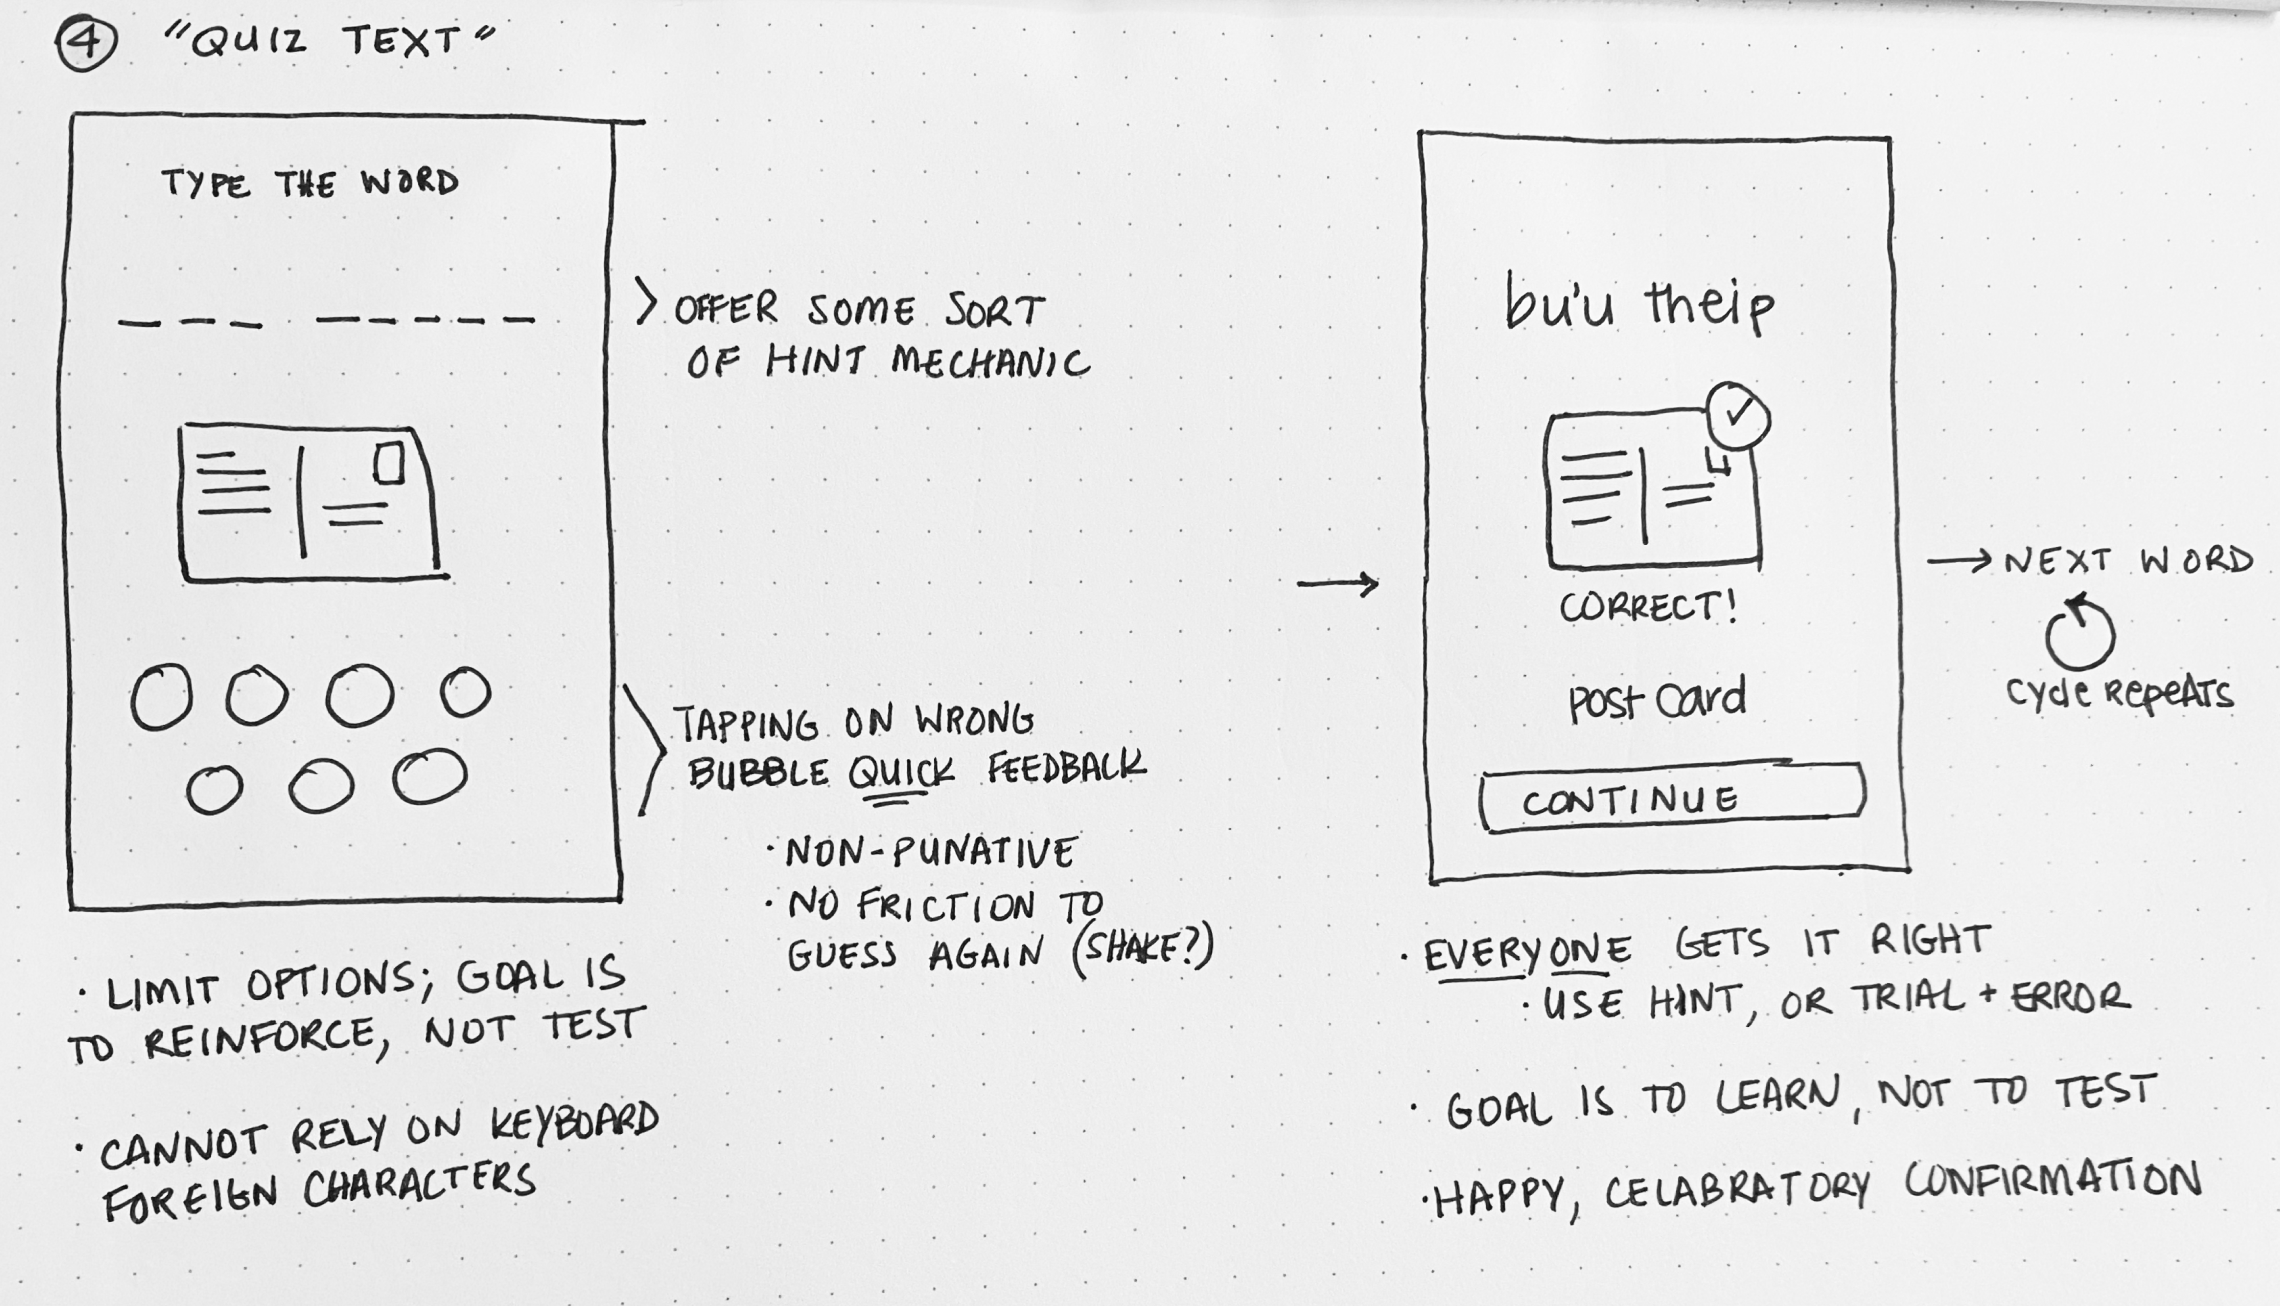 4 "QUIZ TEXT"
TYPE THE WORD
> OFFER SOME SORT
OF HINT MECHANIC
TAPPING ON WRONG
BUBBLE QUICK FEEDBACK
· NON-PUNATIVE
· NO FRICTION TO
GUESS AGAIN (SHAKE?)
· LIMIT OPTIONS; GOAL IS
TO REINFORCE, NOT TEST
· CANNOT RELY ON KEYBOARD
FOREIGN CHARACTERS
bu'u theip
CORRECT!
post card
CONTINUE
→ NEXT WORD
CYcle RepeATS
· EVERYONE GETS IT RIGHT
· USE HINT, OR TRIAL + ERROR
· GOAL IS TO LEARN, NOT TO TEST
· HAPPY, CELABRATORY CONFIRMATION